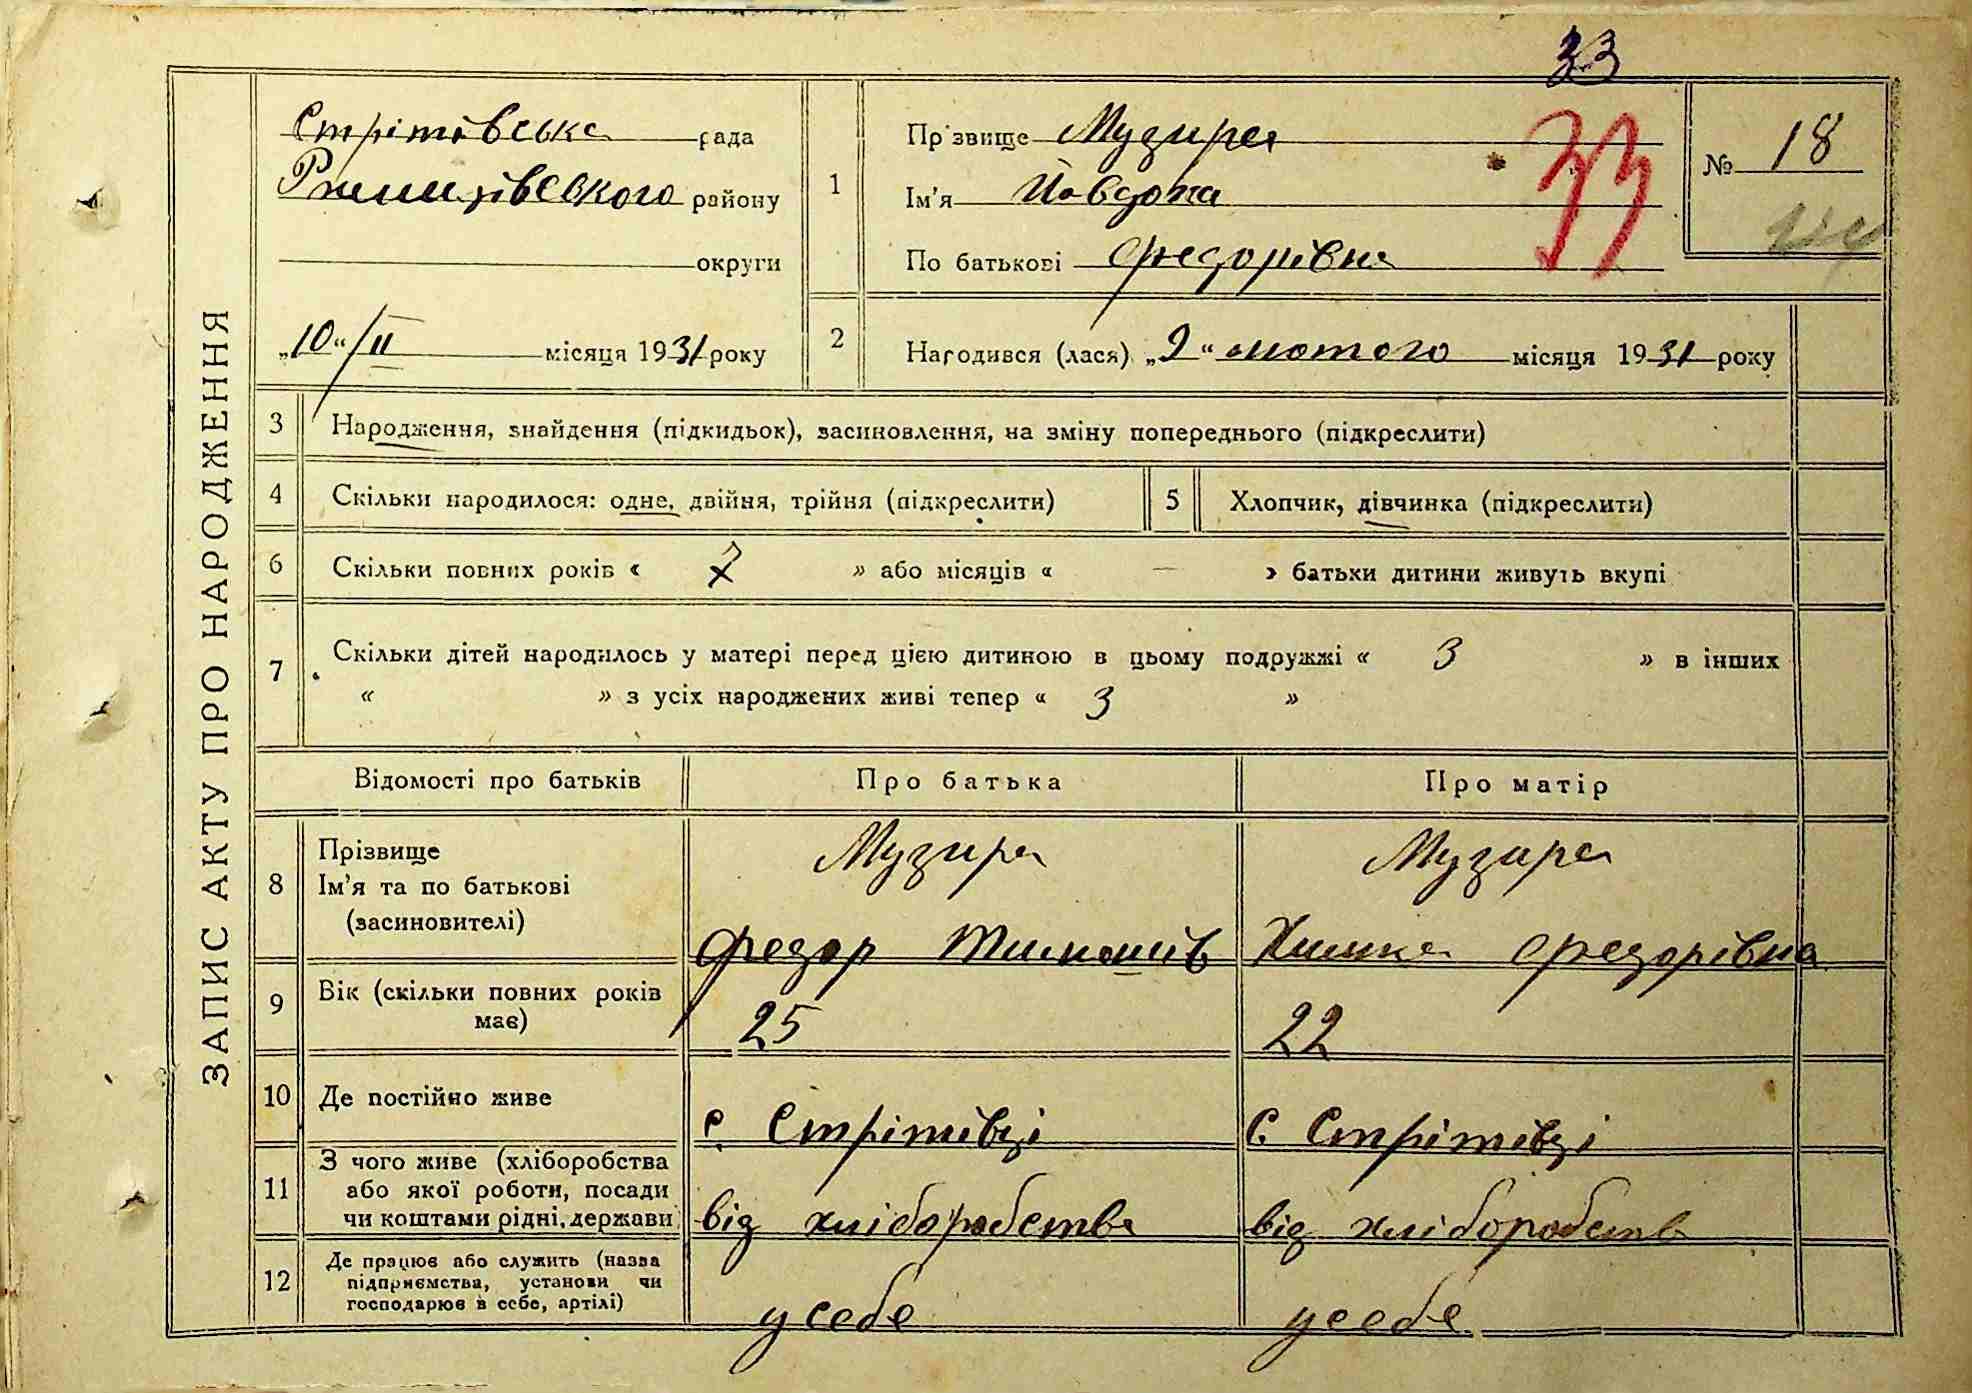 33
ЗАПИС АКТУ ПРО НАРОДЖЕННЯ
Стрітівська рада
Ржищівського району
округи
„10“/II місяця 1931 року
1
Прізвище Музира
Ім'я Йовдоха
По батькові Федорівна
33
№ 18
2
Народився (лася) „9“ лютого місяця 1931 року
3 Народження, знайдення (підкидьок), засиновлення, на зміну попереднього (підкреслити)
4 Скільки народилося: одне, двійня, трійня (підкреслити)
5 Хлопчик, дівчинка (підкреслити)
6 Скільки повних років « 7 » або місяців « — » батьки дитини живуть вкупі
7 Скільки дітей народилось у матері перед цією дитиною в цьому подружжі « 3 » в інших
« » з усіх народжених живі тепер « 3 »
Відомості про батьків Про батька Про матір
8 Прізвище
Ім'я та по батькові
(засиновителі)
Музира
Федор Тимошів
Музира
Химка Федорівна
9 Вік (скільки повних років
має)
25
22
10 Де постійно живе
с. Стрітівці
с. Стрітівці
11 З чого живе (хліборобства
або якої роботи, посади
чи коштами рідні, держави
від хліборобства
від хліборобств
12 Де працює або служить (назва
підприємства, установи чи
господарює в себе, артілі)
у себе
у себе